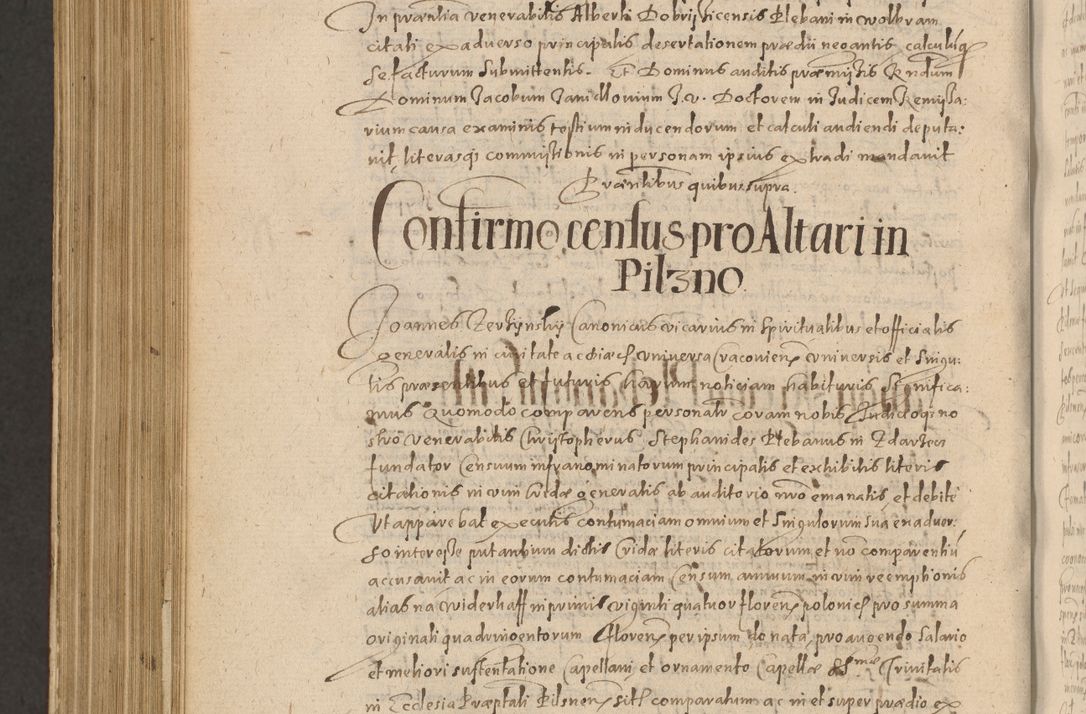 In præntia venerabilis Alberti Dobrzÿicensis Plebani in wolbram
citati ex adverso principalis desertationem prædii negantis calculūq
se facturum submittentis. Et Dominus auditis præmissis Rndum
Dominum Jacobum Janidlovium J. v. Doctorem in Judicem Remissa:
rium causa examinis testium inducendorum et calculi audiendi deputa:
vit, literasq commissionis in personam ipsius extradi mandavit
Præntibus quibus supra.
Confirmo census pro Altari in
Pilzno
Joannes Zerzÿnskÿ Canonicus vicarius in spiritualibus et officialis
generalis in civitate ac diæc universa Cracovien universis et Singu:
lis præsentibus et futuris harum noticiam habituris Significa:
mus Quomodo comparens personalr coram nobis Judicioqs no
stro venerabilis Christopherus Stephanides Plebanus in Zdarzec
fundator Censuum infranominatorum principalis et exhibitis literis
citationis in vim Cridæ generalis ab auditorio nro emanatis, et debite
Ut apparebat executis contumaciam omnium et Singulorum sua in adver:
so interesse putantium dictis Cridæ literis citatorum et nō comparentiū
accusavit ac in eorum contumaciam Censum annuum in vim reemptionis
alias na widerkaff in primis viginti quatuor floren polonic pro summa
originali quadringentorum Floren per ipsum donata, pro augendo salario
et meliori sustentatione Capellani et ornamento Capellæ SSmæ Trinitatis
in Ecclesia Præptali Pilsnen sitt comparatum ac in et super prædio ex